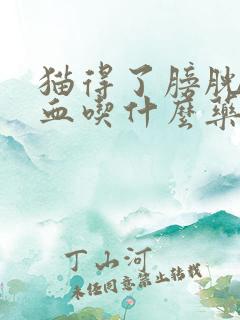 猫得了膀胱
血吃什麼藥
丁山河
未经同意禁止转载